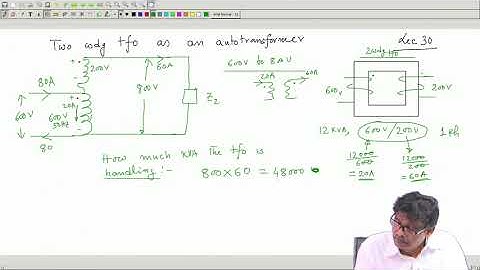 Two wdg tfo as an autotransformer
Lec 30
200V
60A
600V to 800V
2wdg tfo
80A
20A
60A
600V
20A
600V
800V
Z2
600V
200V
80
12 KVA, 600V/200V 1 ph
How much KVA the tfo is
handling:- 800×60 = 48000
12000/600
= 20A
12000/200
= 60A